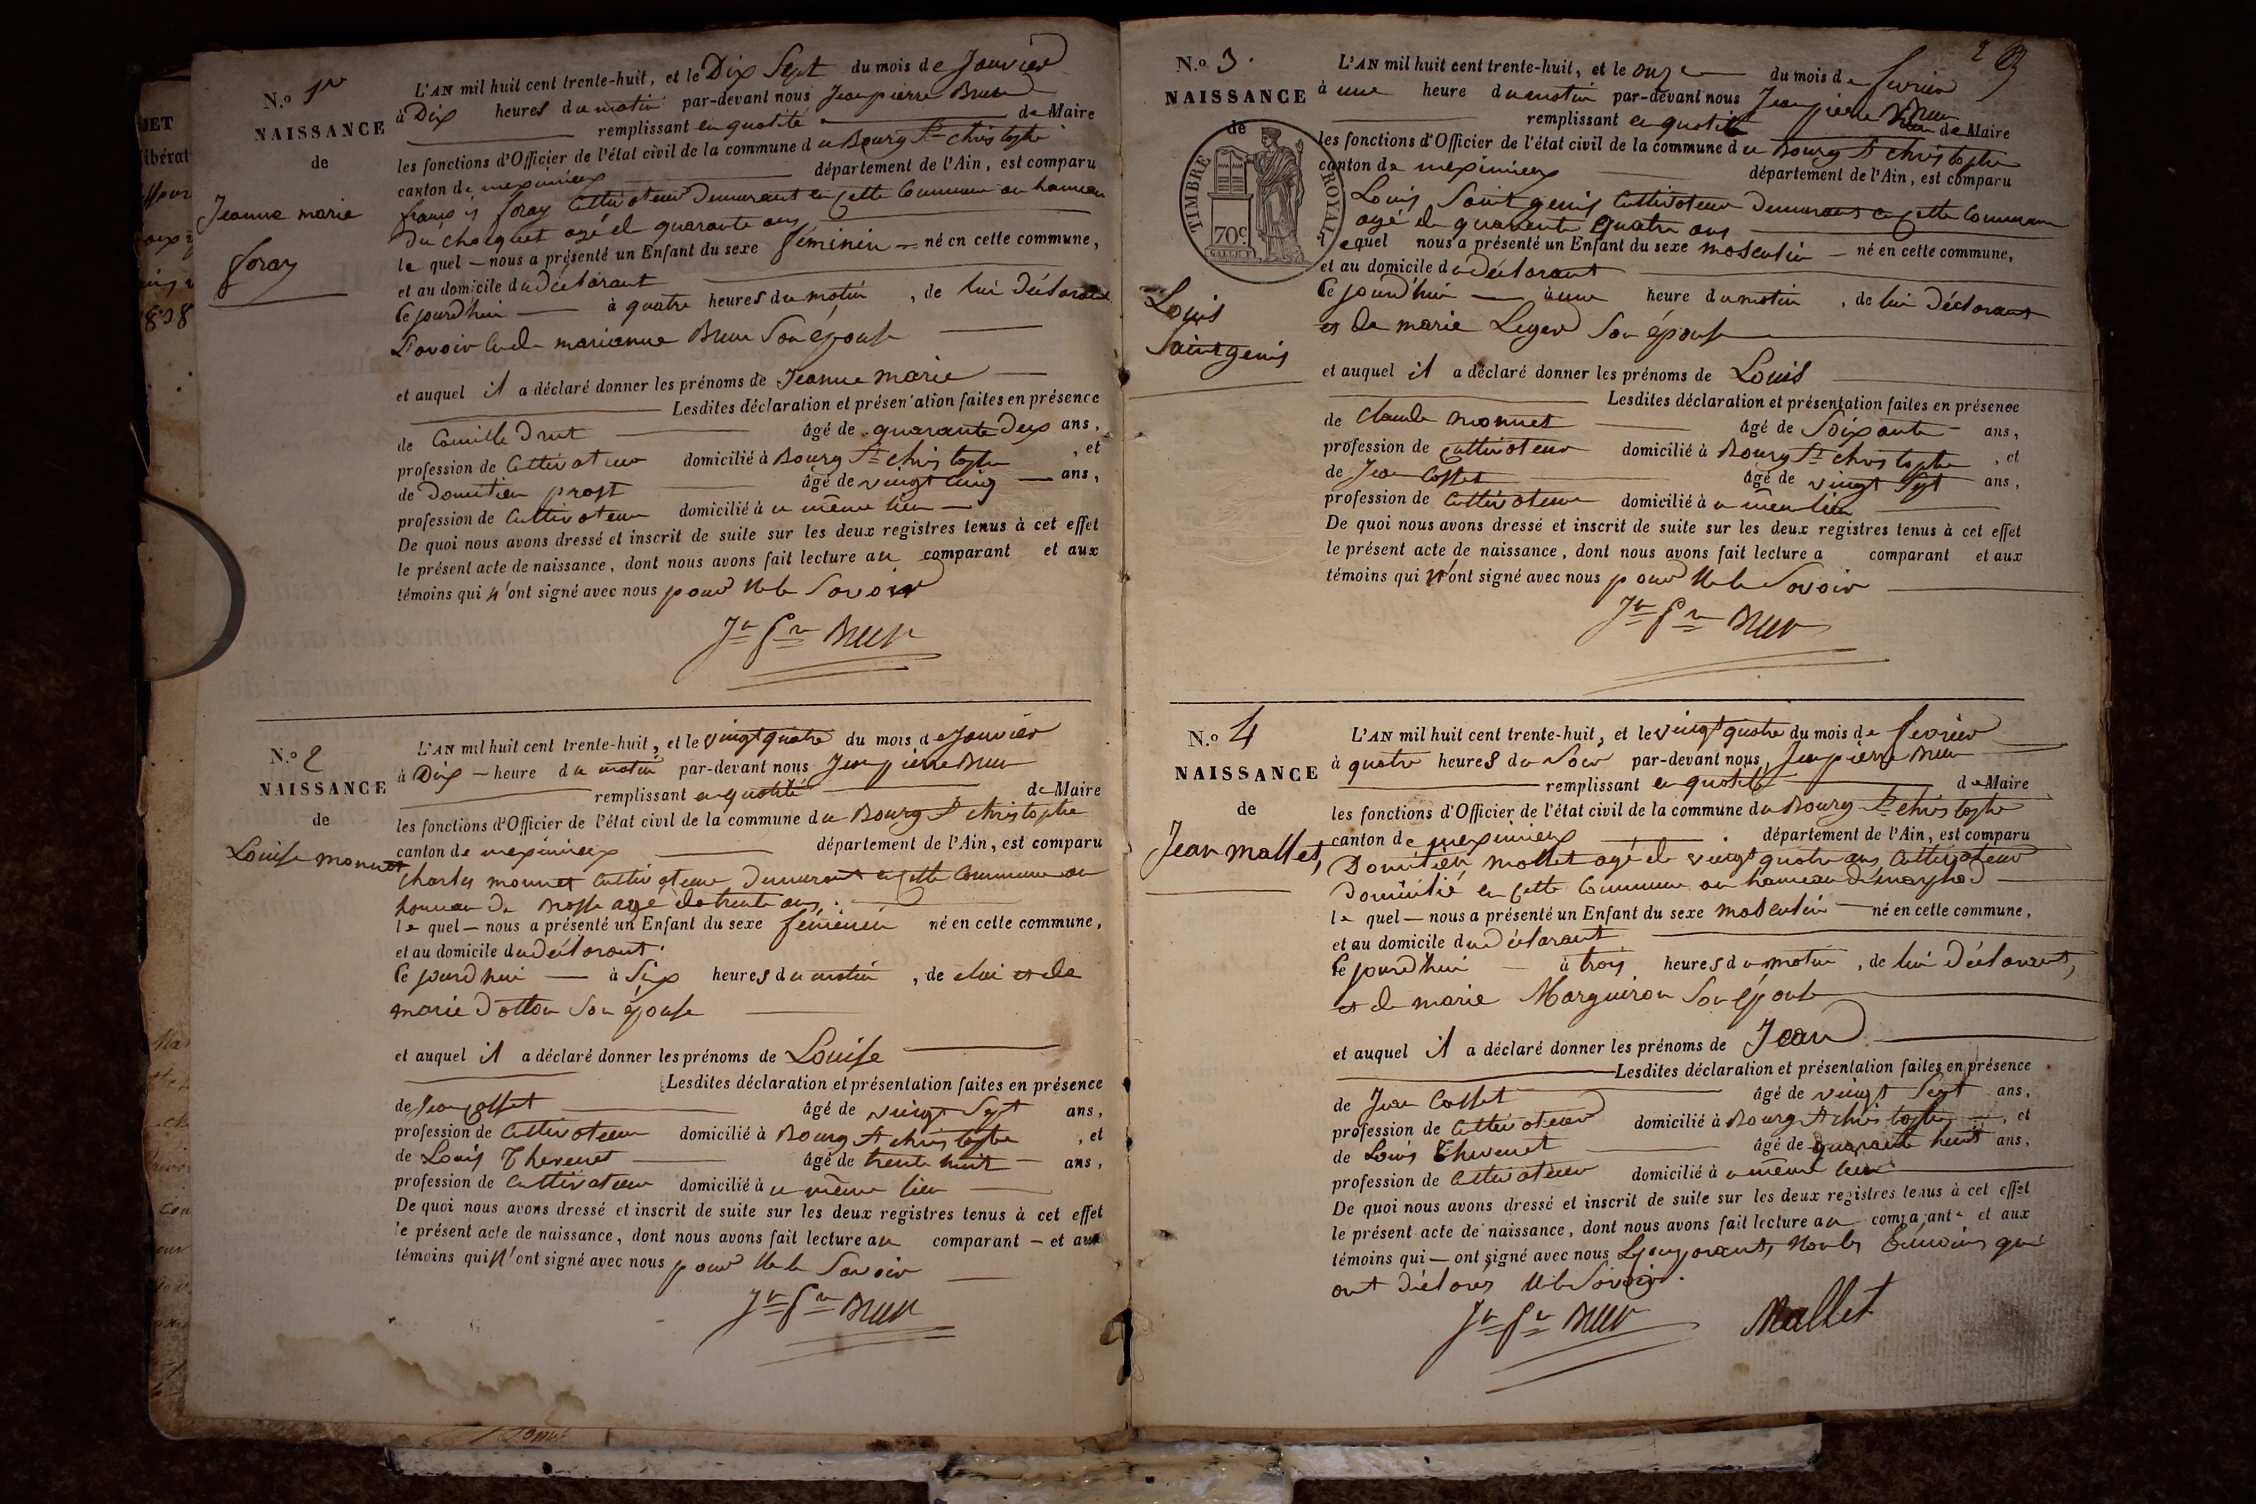 N.o 1er
NAISSANCE
de
Jeanne marie
foray
L'AN mil huit cent trente-huit, et le Dix Sept du mois de Janvier
à Dix heures du matin par-devant nous Jean pierre Brun
remplissant en qualité de Maire
les fonctions d'Officier de l'état civil de la commune du Bourg St christophe
canton de meximieux département de l'Ain, est comparu
françois foray Cultivateur Demeurant en Cette Commune au hameau
Du agé de quarante ans
le quel — nous a présenté un Enfant du sexe féminin né en cette commune,
et au domicile du déclarant
Ce jourd'hui à quatre heures du matin, de lui Déclarant
marianne Brun Son épouse
et auquel il a déclaré donner les prénoms de Jeanne marie
Lesdites déclaration et présentation faites en présence
de Camille Drut âgé de quarante Deux ans,
profession de Cultivateur domicilié à Bourg St christophe, et
de Domitien prost âgé de vingt cinq ans,
profession de Cultivateur domicilié à u même lieu
De quoi nous avons dressé et inscrit de suite sur les deux registres tenus à cet effet
le présent acte de naissance, dont nous avons fait lecture au comparant et aux
témoins qui n'ont signé avec nous pour ne le Savoir
Jn Pre Brun
N.o 2
NAISSANCE
de
Louise monnet
L'AN mil huit cent trente-huit, et le vingt quatre du mois de Janvier
à Dix — heure du matin par-devant nous Jean pierre Brun
remplissant en qualité de Maire
les fonctions d'Officier de l'état civil de la commune du Bourg St christophe
canton de meximieux département de l'Ain, est comparu
Charles monnet Cultivateur Demeurant en Cette Commune au
hameau De agé de trente ans.
le quel — nous a présenté un Enfant du sexe féminin né en cette commune,
et au domicile du déclarant
Ce jourd'hui à Six heures du matin, de lui et de
marie Son épouse
et auquel il a déclaré donner les prénoms de Louise
Lesdites déclaration et présentation faites en présence
de Jean Cottet âgé de vingt Sept ans,
profession de Cultivateur domicilié à Bourg St christophe, et
de Louis Thevenet âgé de trente huit ans,
profession de Cultivateur domicilié à u même lieu
De quoi nous avons dressé et inscrit de suite sur les deux registres tenus à cet effet
le présent acte de naissance, dont nous avons fait lecture au comparant — et aux
témoins qui n'ont signé avec nous pour ne le Savoir
Jn Pre Brun
2
N.o 3.
NAISSANCE
de
TIMBRE ROYAL
70c
Louis
Saintgenis
L'AN mil huit cent trente-huit, et le onze du mois de fevrier
à une heure du matin par-devant nous Jean pierre Brun
remplissant en qualité de Maire
les fonctions d'Officier de l'état civil de la commune du Bourg St christophe
canton de meximieux département de l'Ain, est comparu
Louis Saint genis Cultivateur Demeurant en Cette Commune
agé de quarante quatre ans
lequel nous a présenté un Enfant du sexe masculin né en cette commune,
et au domicile du déclarant
Ce jourd'hui à une heure du matin, de lui Déclarant
et De marie Leger Son épouse
et auquel il a déclaré donner les prénoms de Louis
Lesdites déclaration et présentation faites en présence
de Claude monnet âgé de Soixante ans,
profession de Cultivateur domicilié à Bourg St christophe, et
de Jean Cottet âgé de vingt Sept ans,
profession de Cultivateur domicilié à u même lieu
De quoi nous avons dressé et inscrit de suite sur les deux registres tenus à cet effet
le présent acte de naissance, dont nous avons fait lecture a comparant et aux
témoins qui n'ont signé avec nous pour ne le Savoir
Jn Pre Brun
N.o 4
NAISSANCE
de
Jean mallet,
L'AN mil huit cent trente-huit, et le vingt quatre du mois de fevrier
à quatre heures du Soir par-devant nous, Jean pierre Brun
remplissant en qualité de Maire
les fonctions d'Officier de l'état civil de la commune du Bourg St christophe
canton de meximieux département de l'Ain, est comparu
Domitien mallet agé de vingt quatre ans Cultivateur
Domicilié en Cette Commune au hameau
le quel — nous a présenté un Enfant du sexe masculin né en cette commune,
et au domicile du déclarant
Ce jourd'hui à trois heures du matin, de lui Déclarant,
et de marie Marguiron Son épouse
et auquel il a déclaré donner les prénoms de Jean
Lesdites déclaration et présentation faites en présence
de Jean Cottet âgé de vingt Sept ans,
profession de Cultivateur domicilié à Bourg St christophe, et
de Louis Thevenet âgé de quarante huit ans,
profession de Cultivateur domicilié à u même lieu
De quoi nous avons dressé et inscrit de suite sur les deux registres tenus à cet effet
le présent acte de naissance, dont nous avons fait lecture au comparant et aux
témoins qui — ont signé avec nous Le Comparant, non les témoins qui
ont déclarés ne le Savoir.
Jn Pre Brun Mallet